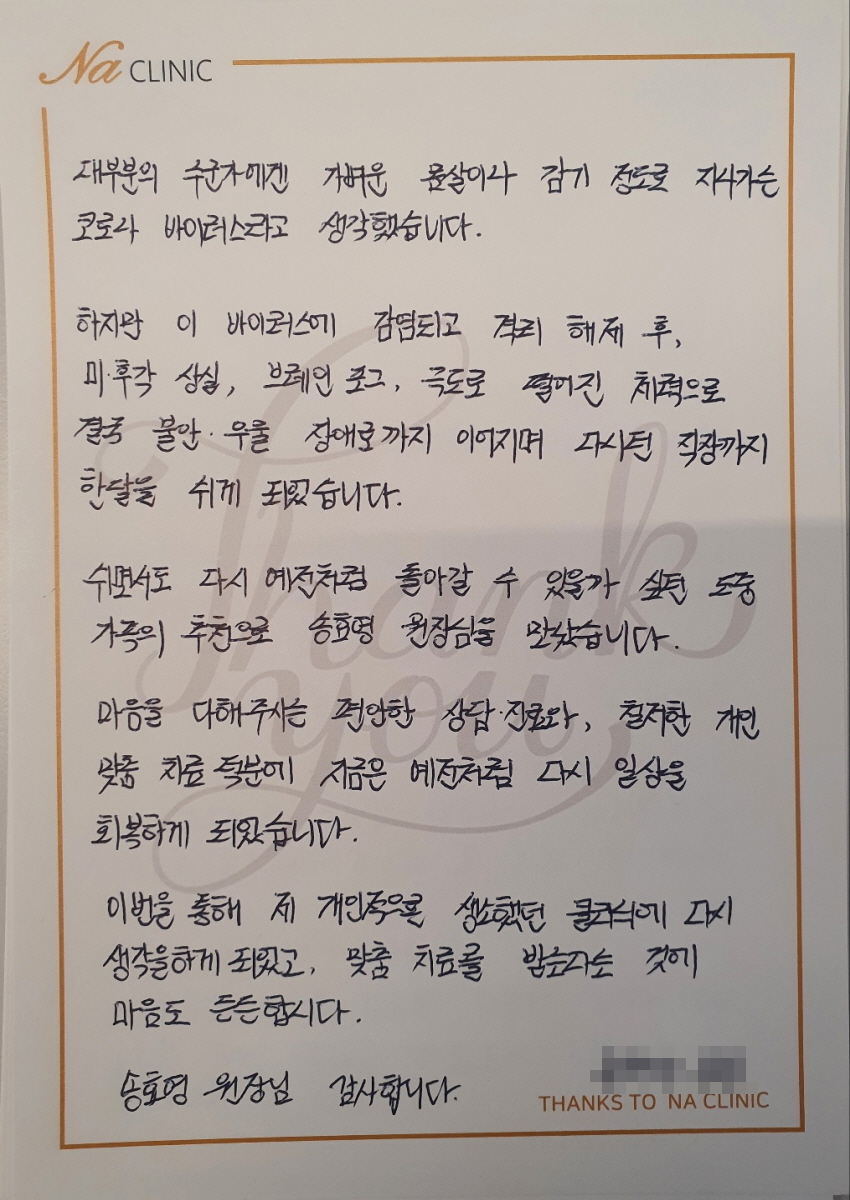 Na CLINIC
대부분의 수군가에겐 가벼운 몸살이나 감기 정도로 지나가는
코로나 바이러스라고 생각했습니다.
하지만 이 바이러스에 감염되고 격리 해제 후,
미·후각 상실, 브레인 포그, 극도로 떨어진 체력으로
결국 불안·우울 장애로까지 이어지며 다시던 직장까지
한달을 쉬게 되었습니다.
쉬면서도 다시 예전처럼 돌아갈 수 있을가 싶던 도중
가족의 추천으로 송효영 원장님을 만났습니다.
마음을 다해주시는 편안한 상담·진료와, 철저한 개인
맞춤 치료 덕분에 지금은 예전처럼 다시 일상을
회복하게 되었습니다.
이번을 통해 제 개인적으론 생소했던 클리닉에 다시
생각을하게 되었고, 맞춤 치료를 받는다는 것에
마음도 든든합니다.
송효영 원장님 감사합니다.
THANKS TO NA CLINIC
Thank
you